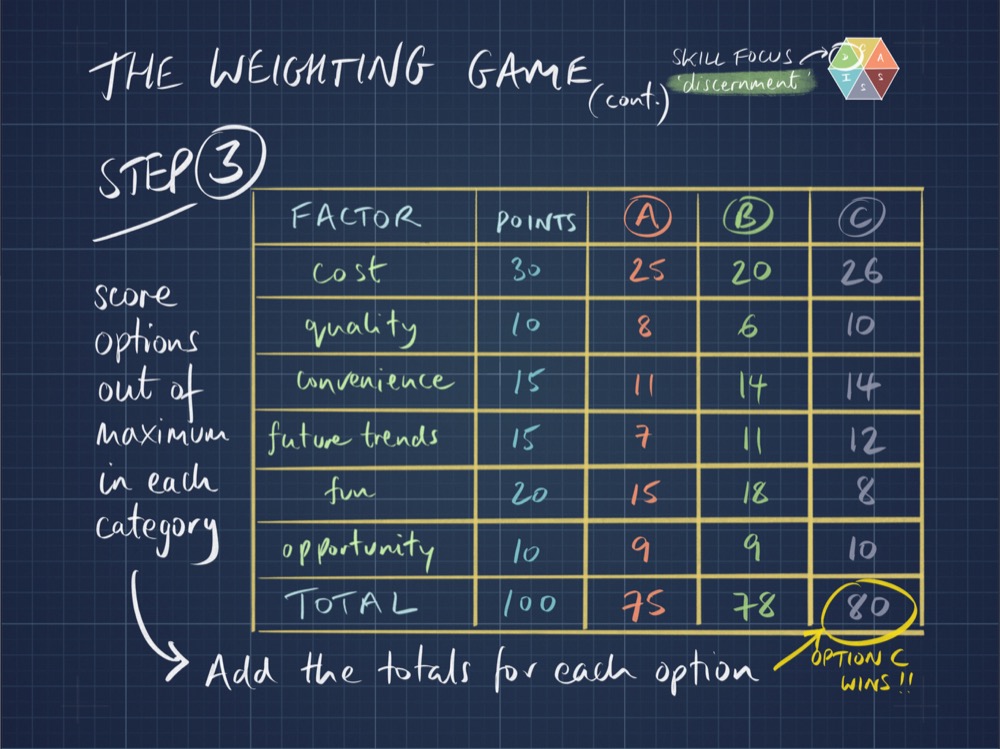 THE WEIGHTING GAME
(cont.)
SKILL FOCUS
'discernment'
D A
I S
S
STEP 3
score
options
out of
maximum
in each
category
FACTOR POINTS A B C
cost 30 25 20 26
quality 10 8 6 10
convenience 15 11 14 14
future trends 15 7 11 12
fun 20 15 18 8
opportunity 10 9 9 10
TOTAL 100 75 78 80
Add the totals for each option
OPTION C
WINS!!